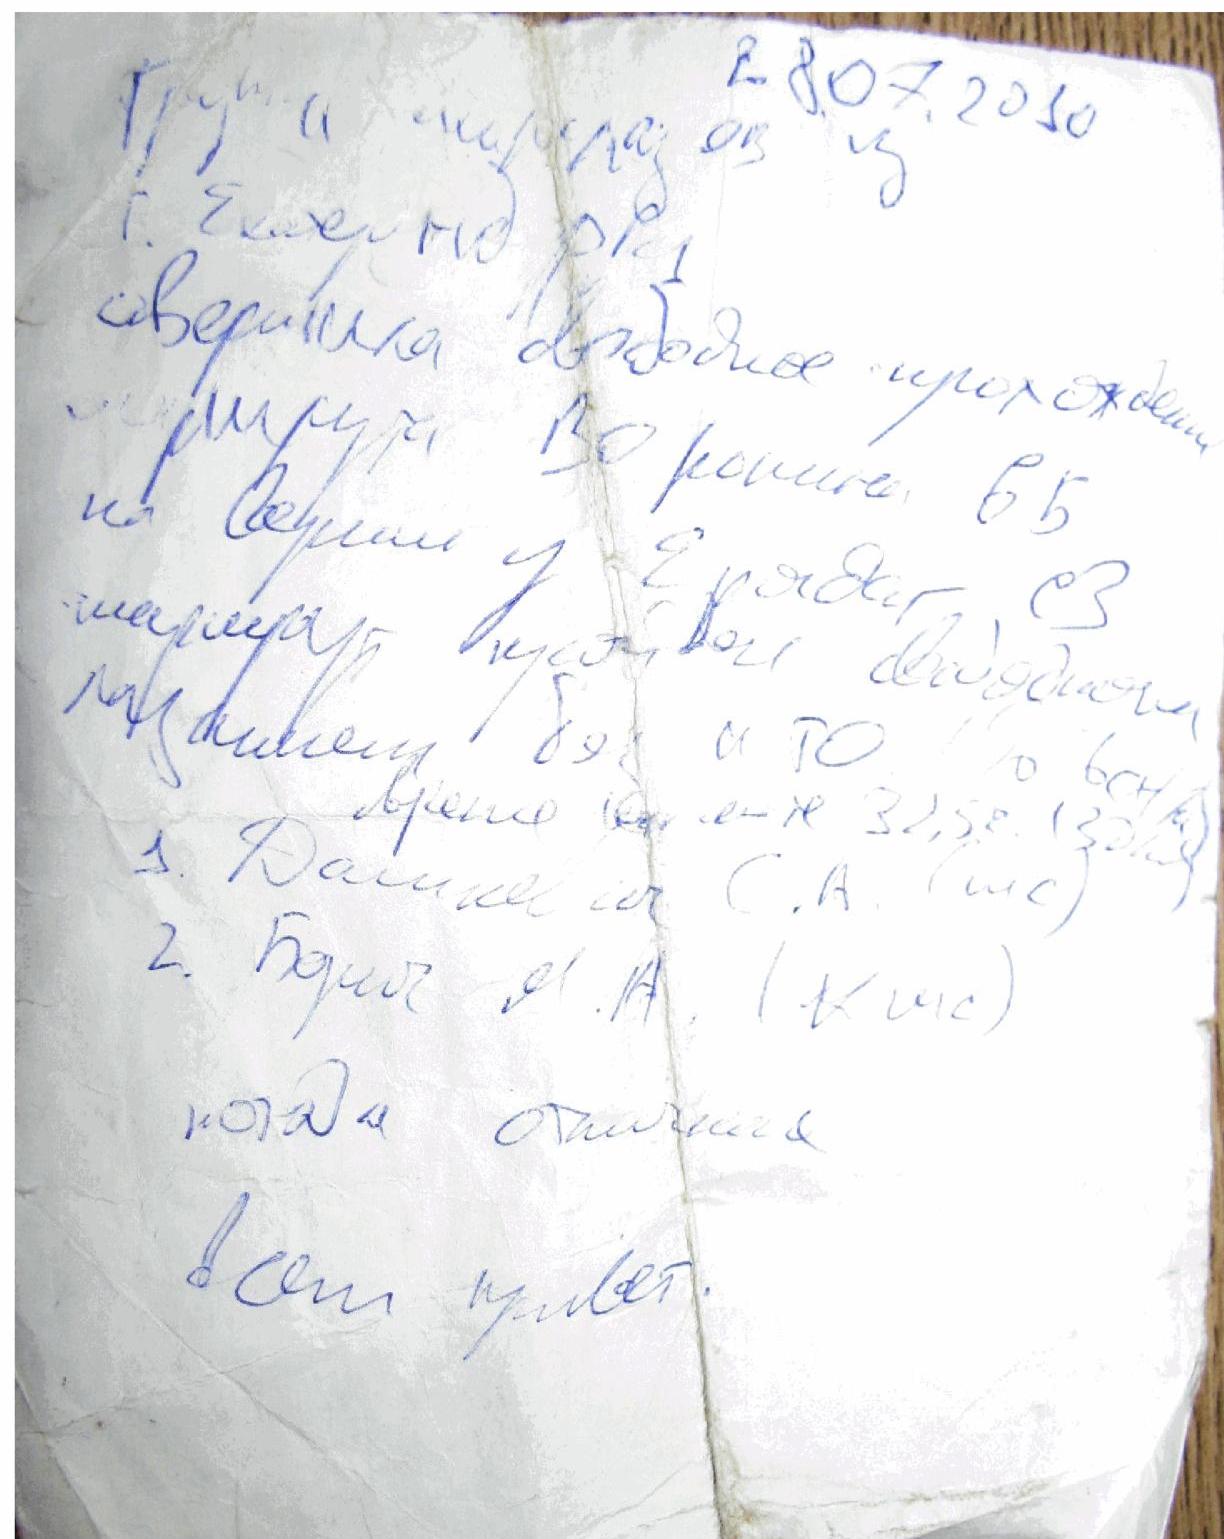 28.07.2010
Группа из
г. Екатеринбурга
совершила свободное прохождение
маршрута Воронина 6Б
на вершину Ерыдаг, СЗ
маршрут пройден свободным
лазанием без ИТО
время 32,5 ч.
1. Данкевич С.А. (мс)
2. Борич И.А. (кмс)
погода отличная
Всем привет.